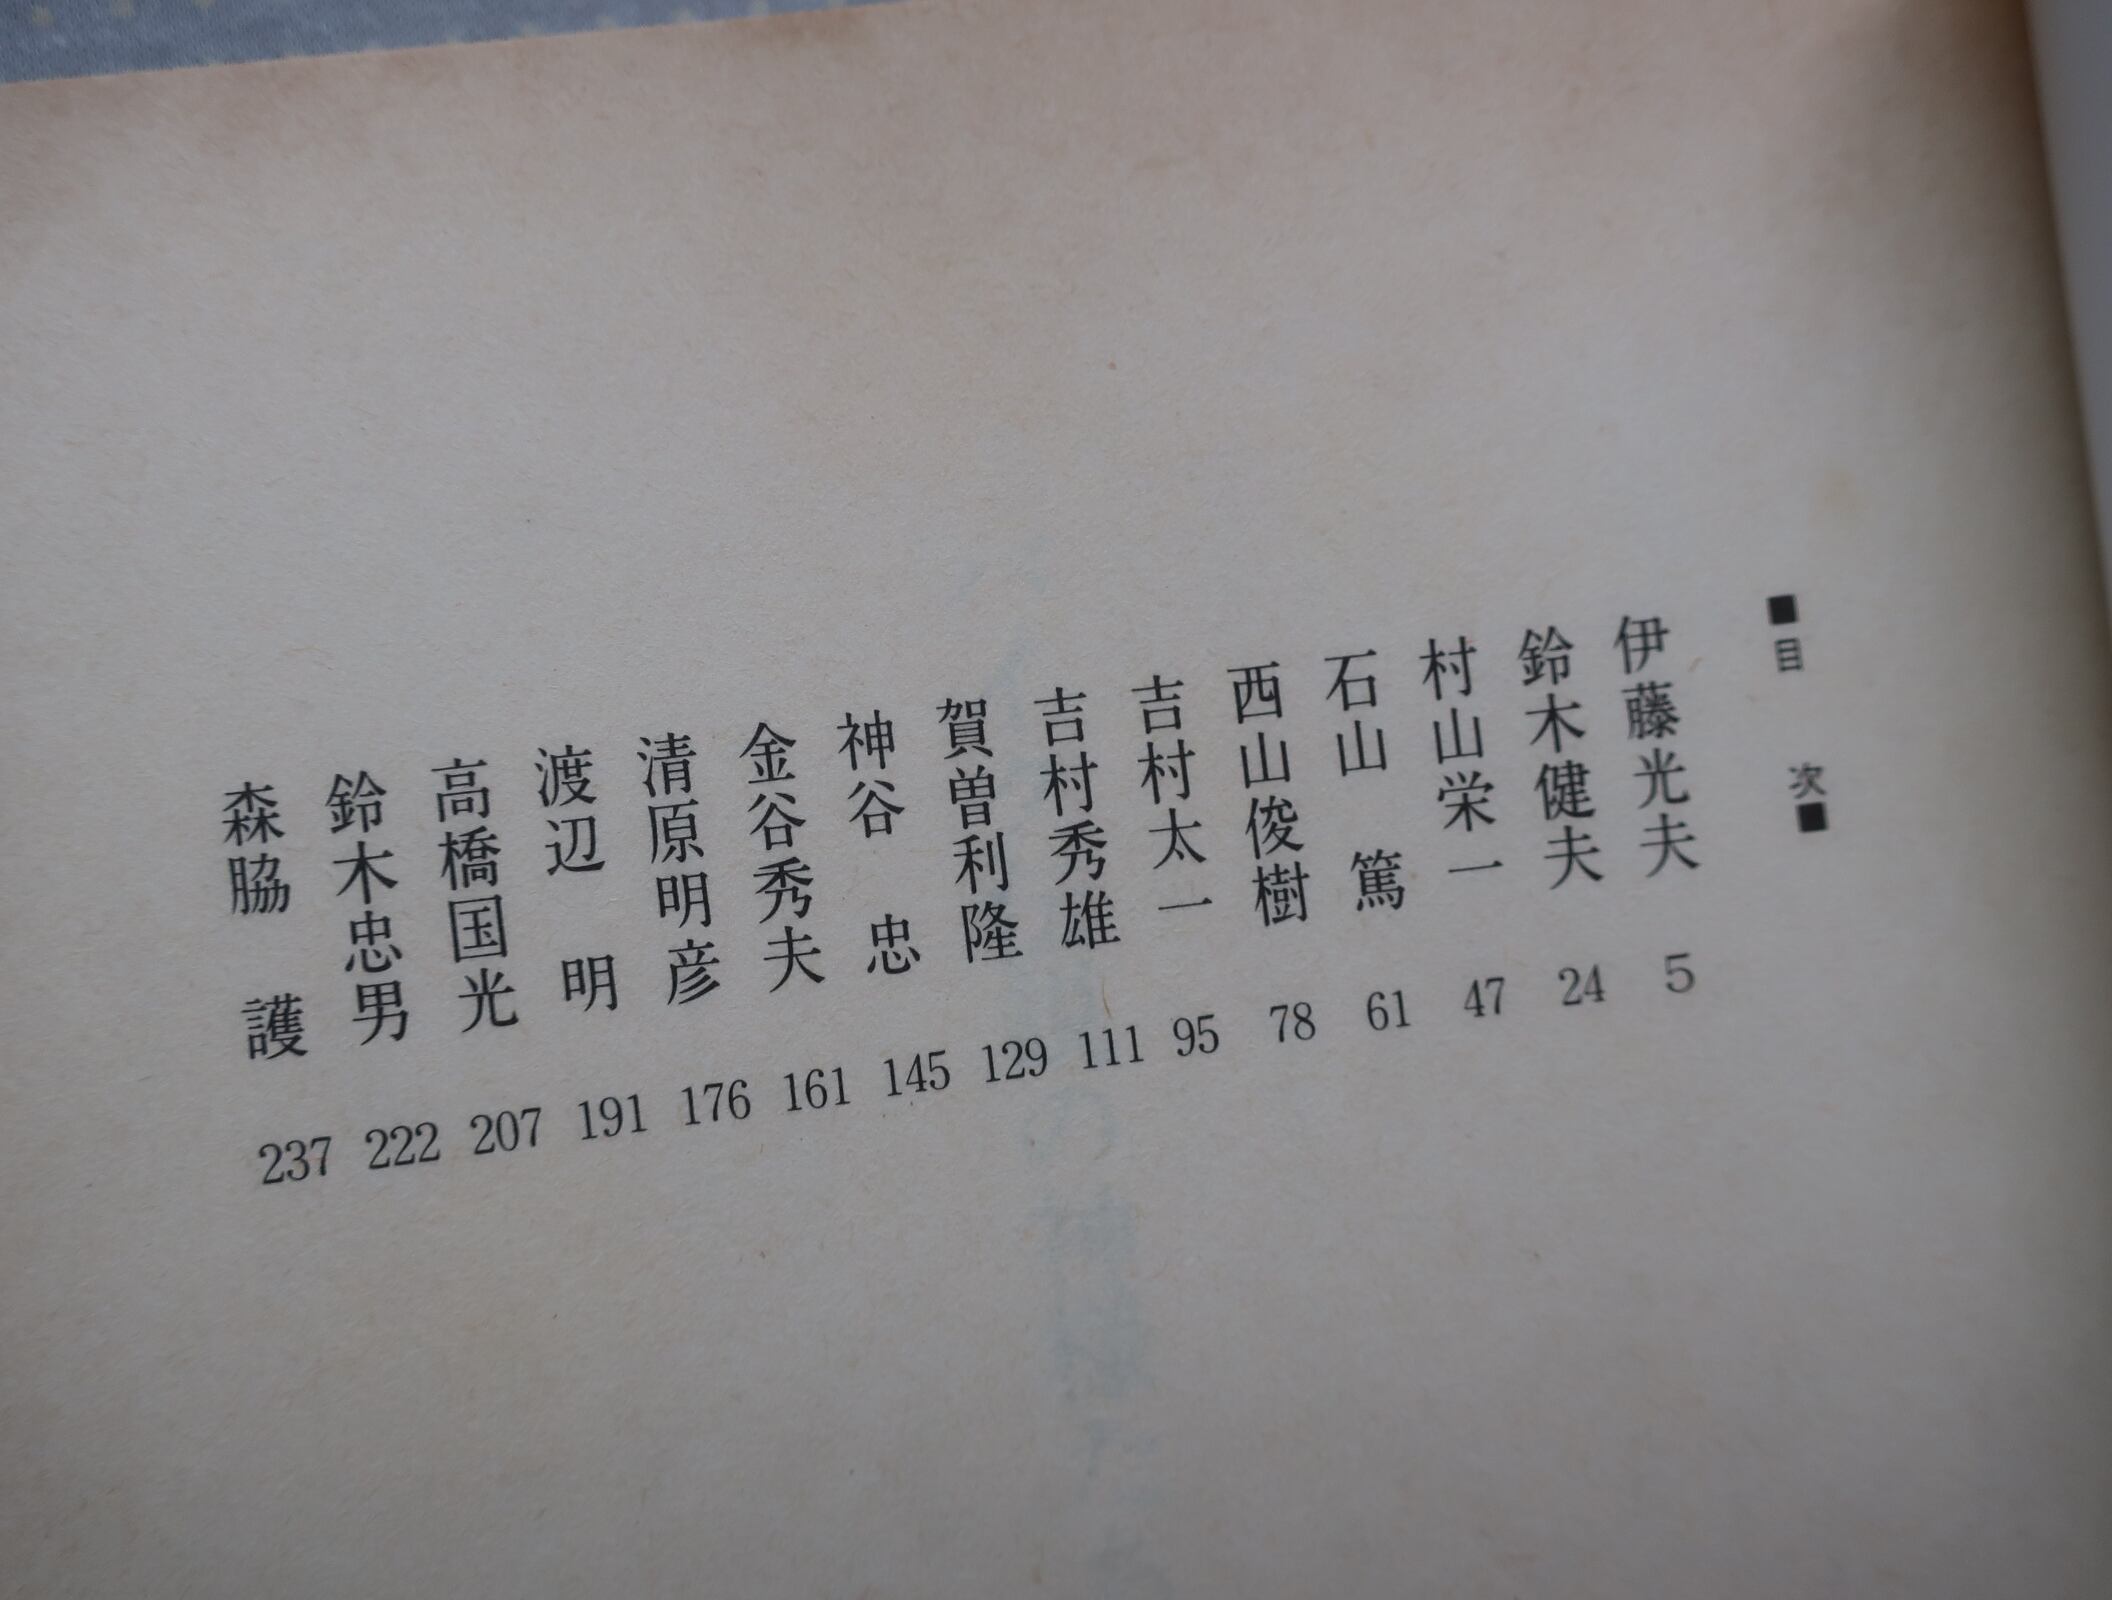 ■目 次■
伊藤光夫 5
鈴木健夫 24
村山栄一 47
石山 篤 61
西山俊樹 78
吉村太一 95
吉村秀雄 111
賀曽利隆 129
神谷 忠 145
金谷秀夫 161
清原明彦 176
渡辺 明 191
高橋国光 207
鈴木忠男 222
森脇 護 237